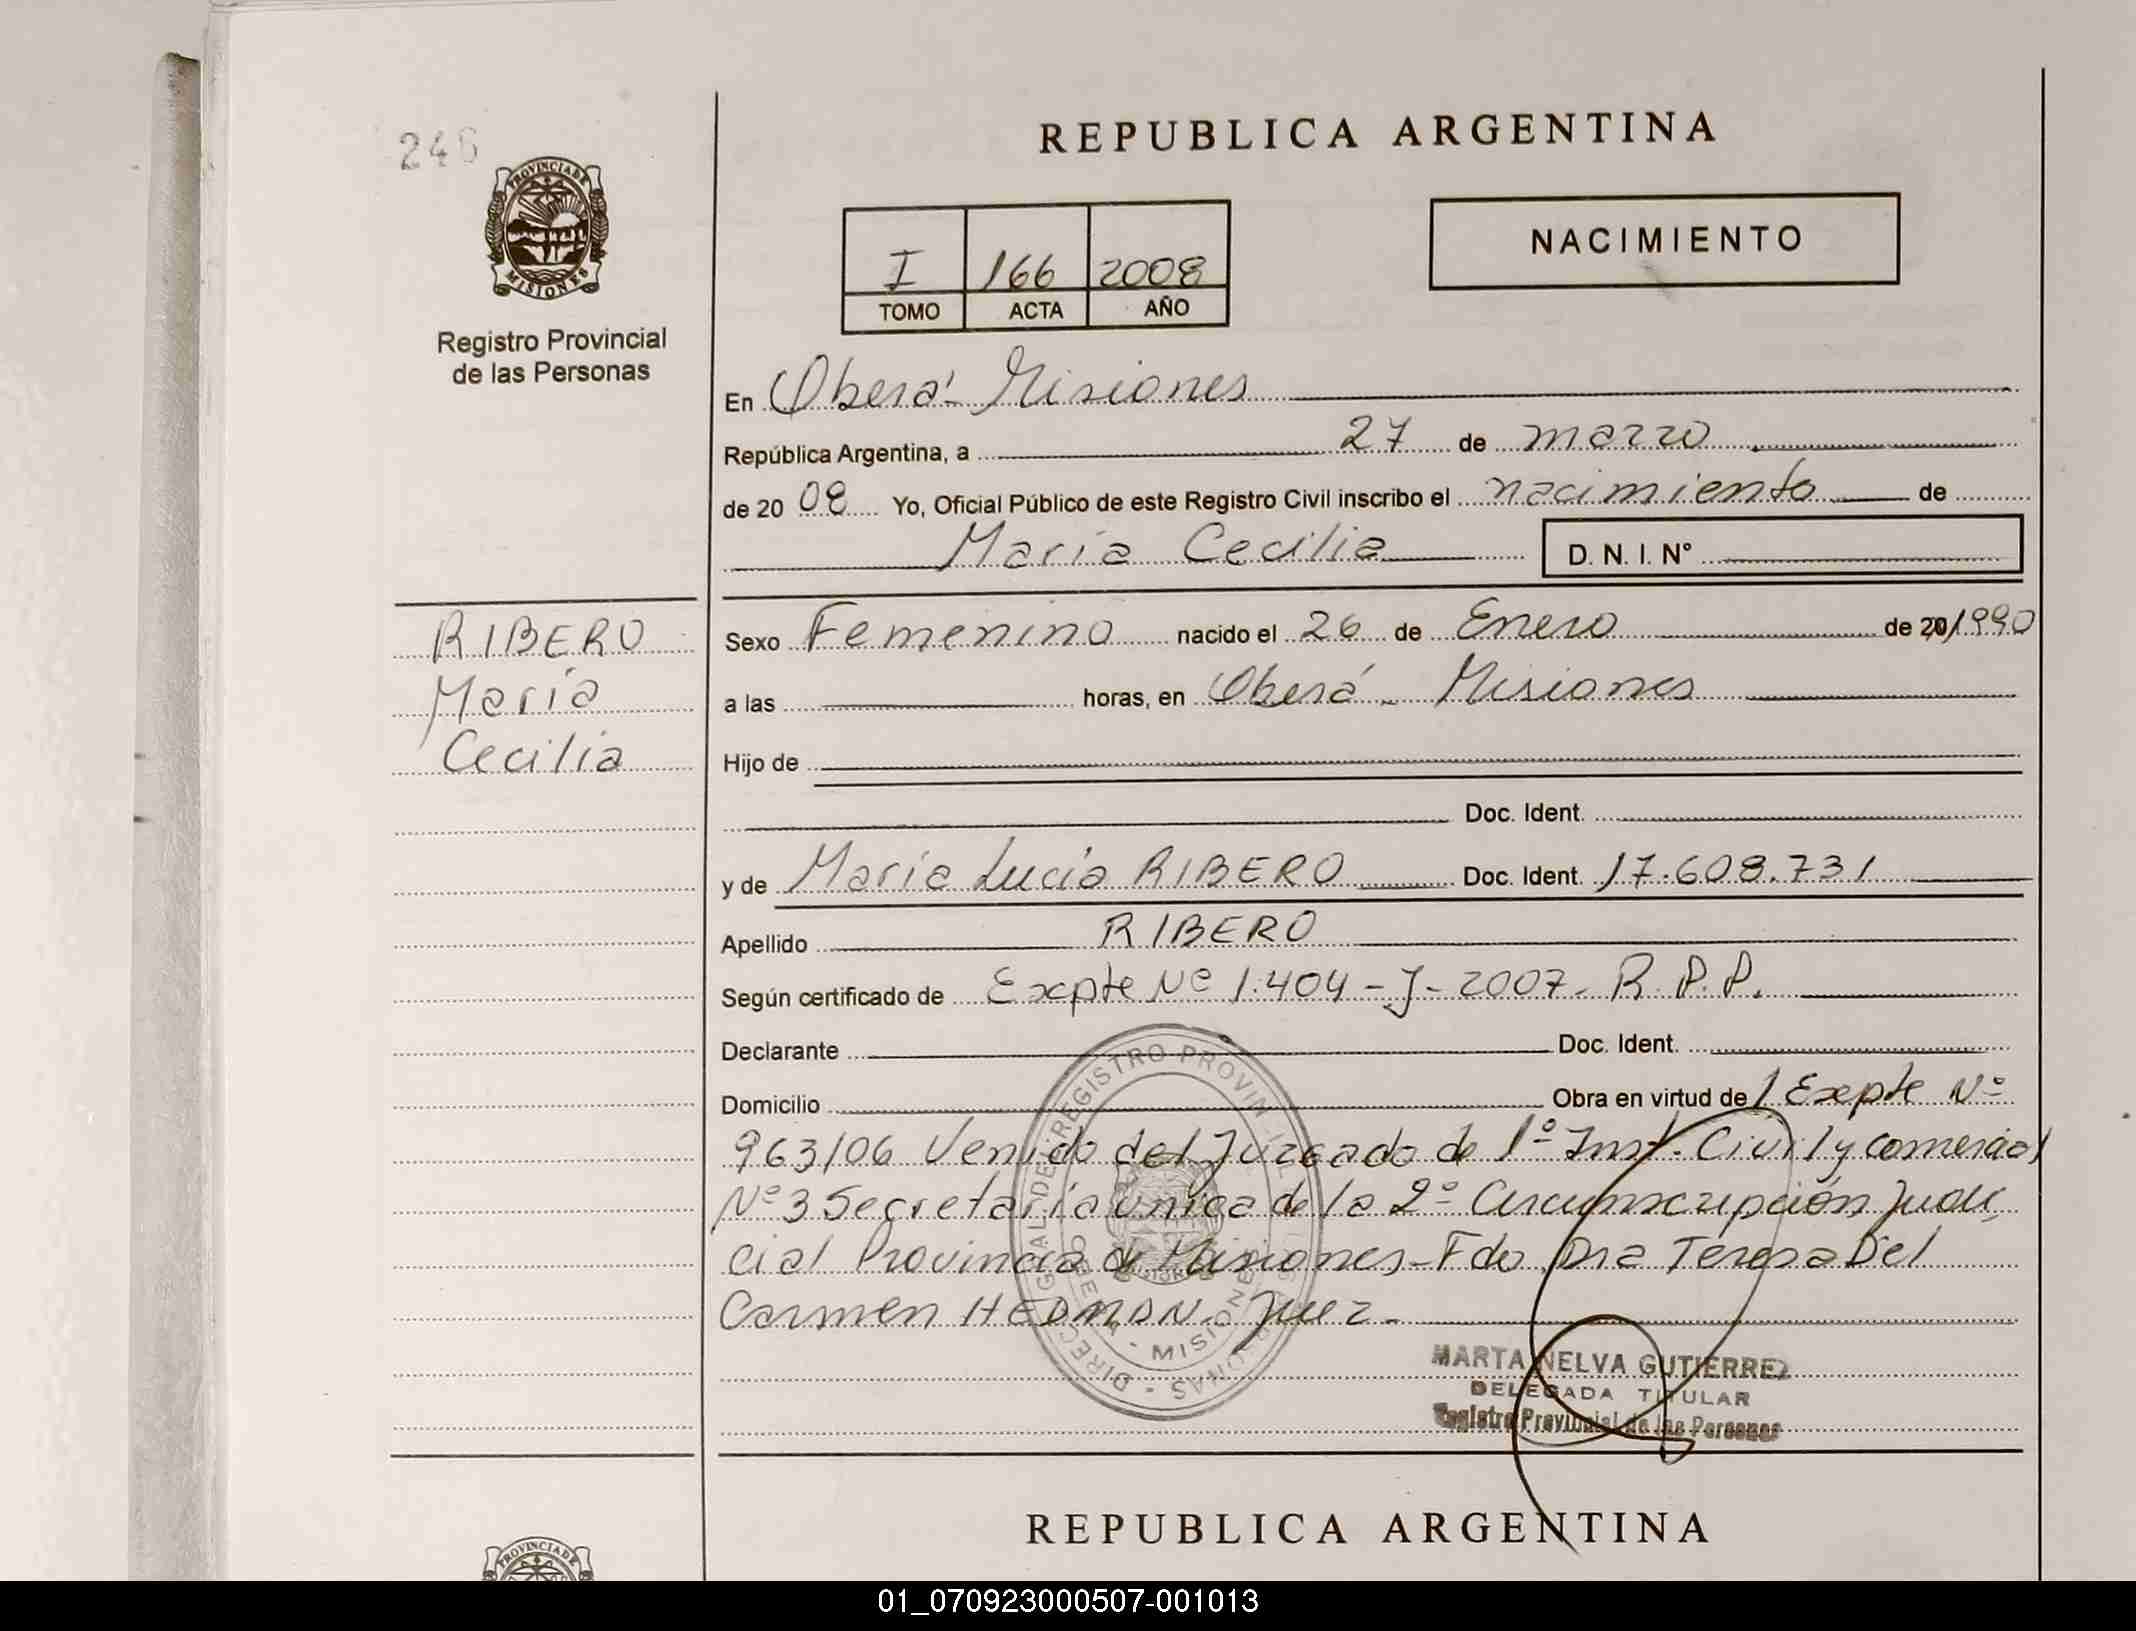 246
PROVINCIA DE
MISIONES
Registro Provincial
de las Personas
REPUBLICA ARGENTINA
I 166 2008
TOMO ACTA AÑO
NACIMIENTO
En Oberá - Misiones
República Argentina, a 27 de marzo
de 20 08 Yo, Oficial Público de este Registro Civil inscribo el nacimiento de
María Cecilia D. N. I. N°
RIBERO
María
Cecilia
Sexo Femenino nacido el 26 de Enero de 20/1990
a las horas, en Oberá - Misiones
Hijo de
Doc. Ident.
y de María Lucía RIBERO Doc. Ident. 17.608.731
Apellido RIBERO
Según certificado de Expte Nº 1.404 - J - 2007 - R. P. P.
Declarante Doc. Ident.
Domicilio Obra en virtud de / Expte Nº
963/06 Venido del Juzgado de 1º Inst. Civil y comercial
Nº 3 Secretaría única de la 2º Circunscripción Judi
cial Provincia de Misiones - Fdo Dra Teresa Del
Carmen HEDMAN - Juez -
MARTA NELVA GUTIERREZ
DELEGADA TITULAR
Registro Provincial de las Personas
REPUBLICA ARGENTINA
PROVINCIA DE
01_070923000507-001013